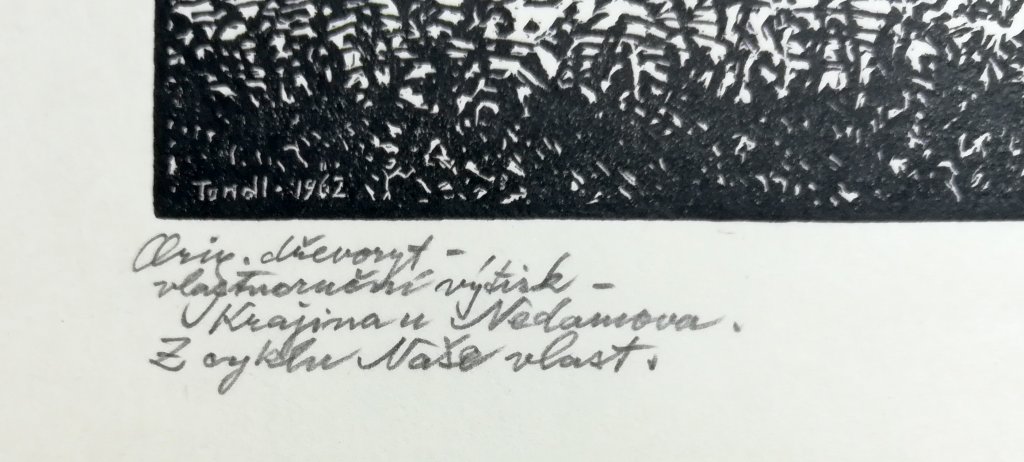 Tondl · 1962
Orig. dřevoryt –
vlastnoruční výtisk –
Krajina u Nedamova.
Z cyklu Naše vlast.